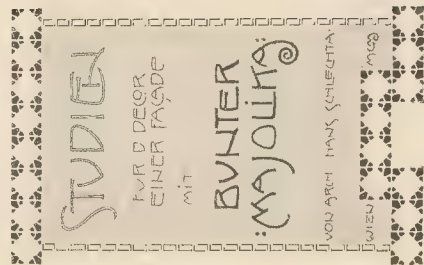 STVDIEN
FVR D DECOR
EINER FAÇADE
MIT
BVNTER
MAJOLIKA:
VON ARCH HANS SCHLECHTA.
WIEN